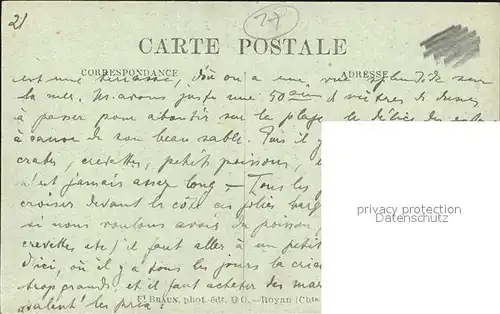 21
CARTE POSTALE
CORRESPONDANCE
ADRESSE
est une terrasse, d'où on a une vue splendide sur
la mer. Ns avons juste une 50aine de mètres de dunes
à passer pour aboutir sur la plage, le délice des
à cause de son beau sable. Puis il y
crabes, crevettes, petits poissons,
n'est jamais assez long — Tous les
croiser devant la côte ces jolies
si nous voulons avoir du poisson,
crevettes etc, il faut aller à un petit
d'ici, où il y a tous les jours la criée
trop grands, et il faut acheter des
avalent les prix!
privacy protection
Datenschutz
Ft BRAUN, phot. édr, DO.—Royan (Chte